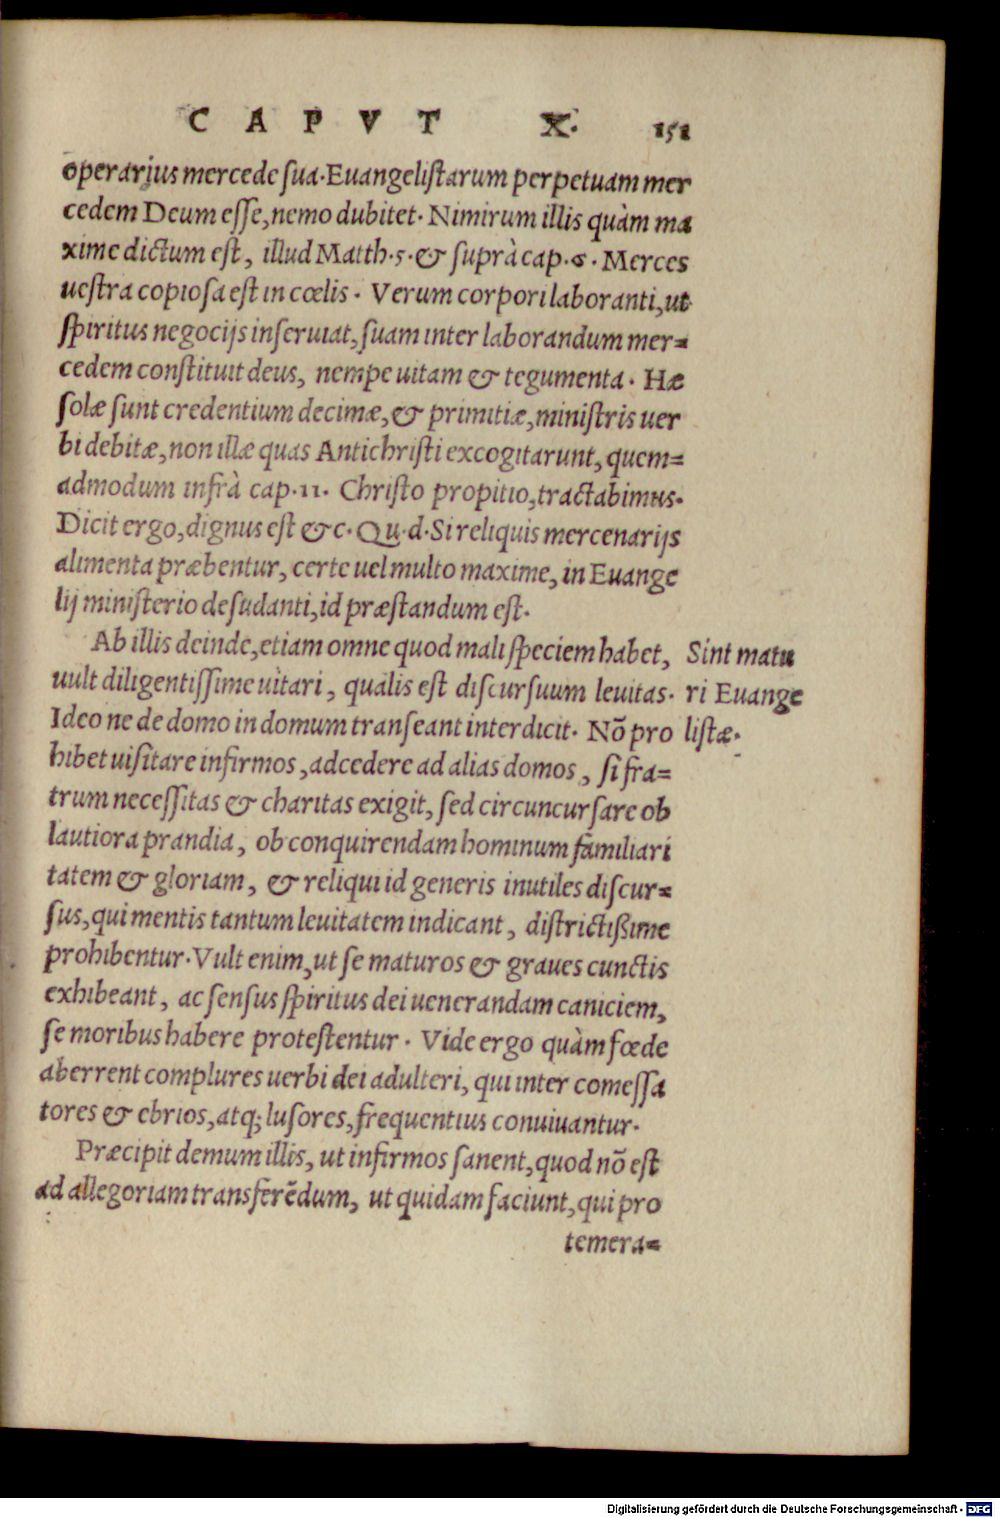 CAPVT X. 151
operarius mercede sua. Euangelistarum perpetuam mer
cedem Deum esse, nemo dubitet. Nimirum illis quàm ma
xime dictum est, illud Matth. 5. & suprà cap. 6. Merces
uestra copiosa est in cœlis. Verum corpori laboranti, ut
spiritus negocijs inseruiat, suam inter laborandum mer=
cedem constituit deus, nempe uitam & tegumenta. Hæ
solæ sunt credentium decimæ, & primitiæ, ministris uer
bi debitæ, non illæ quas Antichristi excogitarunt, quem=
admodum infrà cap. 11. Christo propitio, tractabimus.
Dicit ergo, dignus est &c. Qu. d. Si reliquis mercenarijs
alimenta præbentur, certe uel multo maxime, in Euange
lij ministerio desudanti, id præstandum est.
Ab illis deinde, etiam omne quod mali speciem habet,
uult diligentissime uitari, qualis est discursuum leuitas.
Ideo ne de domo in domum transeant interdicit. Nõ pro
hibet uisitare infirmos, adcedere ad alias domos, si fra=
trum necessitas & charitas exigit, sed circuncursare ob
lautiora prandia, ob conquirendam hominum familiari
tatem & gloriam, & reliqui id generis inutiles discur=
sus, qui mentis tantum leuitatem indicant, districtißime
prohibentur. Vult enim, ut se maturos & graues cunctis
exhibeant, ac sensus spiritus dei uenerandam caniciem,
se moribus habere protestentur. Vide ergo quàm fœde
aberrent complures uerbi dei adulteri, qui inter comessa
tores & ebrios, atq; lusores, frequentius conuiuantur.
Præcipit demum illis, ut infirmos sanent, quod nõ est
ad allegoriam transferẽdum, ut quidam faciunt, qui pro
temera=
Sint matu
ri Euange
listæ.
Digitalisierung gefördert durch die Deutsche Forschungsgemeinschaft - DFG